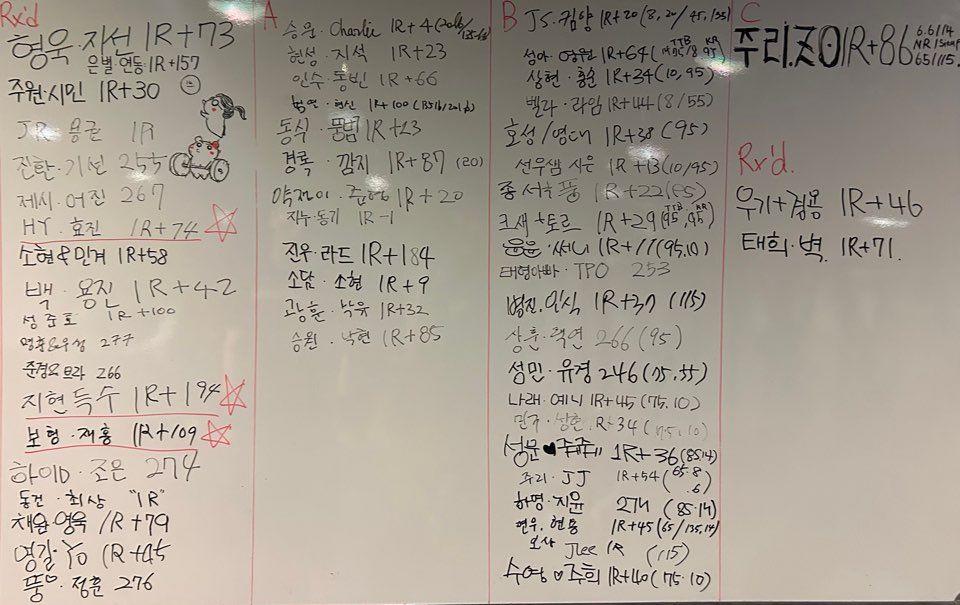 Rx'd
형욱·자선 1R+73
은별·연동·1R+157
주원·시민 1R+30
JR·용근 1R
진환·기선 255
제시·어진 267
HY·효진 1R+74
소현&민겨 1R+58
백·용진 1R+42
성준호 1R+100
277
준경&브라 266
지현 득수 1R+194
보형·재홍 1R+109
하이D·조은 274
동건·최상 "1R"
채원·영욱 1R+79
영길·YO 1R+45
뚱·정훈 276
A
승원·Charlie 1R+4
현성·지석 1R+23
인수·동빈 1R+66
범연·형신 1R+100
동식·뚱범 1R+23
경록·깜지 1R+87 (20)
1R+20
지누·동기 1R-1
진우·라드 1R+184
소담·소형 1R+9
광훈·낙유 1R+32
승원·낙현 1R+85
B
JS·킴양 1R+20 (8,20/45,135)
성아·영원 1R+64
상현·홍순 1R+34(10,95)
벨라·라임 1R+44(8/55)
호성/영대 1R+38 (95)
선우쌤 사은 1R+13(10/95)
종서 풍 1R+22(85)
크새+토르 1R+29 (TTB 95, KR 95)
윤윤·써니 1R+11(95,10)
태형아빠·TPO 253
병진·인식 1R+37 (115)
상훈·택연 266(95)
성민·유경 246(75,55)
나래·예니 1R+45(75.10)
민구·상훈 1R+34(75,10)
성문♥쥬쥬 1R+36(85.14)
주리·JJ 1R+54(65.8.6)
하명·지윤 274 (85.14)
연우, 현동 1R+45(65/135,14)
모사 JLee 1R (115)
수영♡주희 1R+40(75.10)
C
주리.ZO 1R+86 6.6/14 NR 1 Step 65/115.
Rx'd.
우기+겸용 1R+46
태희·벽. 1R+71.